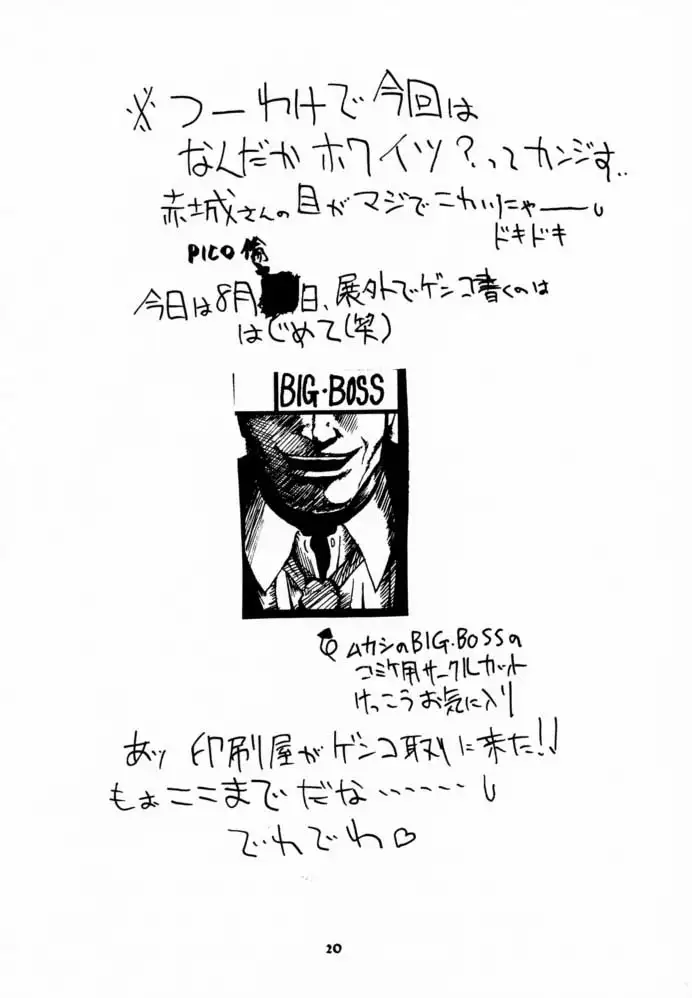 ※つーわけで今回は
なんだかホワイツ?ってカンジす..
赤城さんの目がマジでこわいにゃーー
ドキドキ
PICO
今日は8月 日、屋外でゲンコ書くのは
はじめて(笑)
BIG・BOSS
ムカシのBIG・BOSSの
コミケ用サークルカット
けっこうお気に入り
あッ 印刷屋がゲンコ取りに来た!!
もぉここまでだな……
でわでわ♡
20